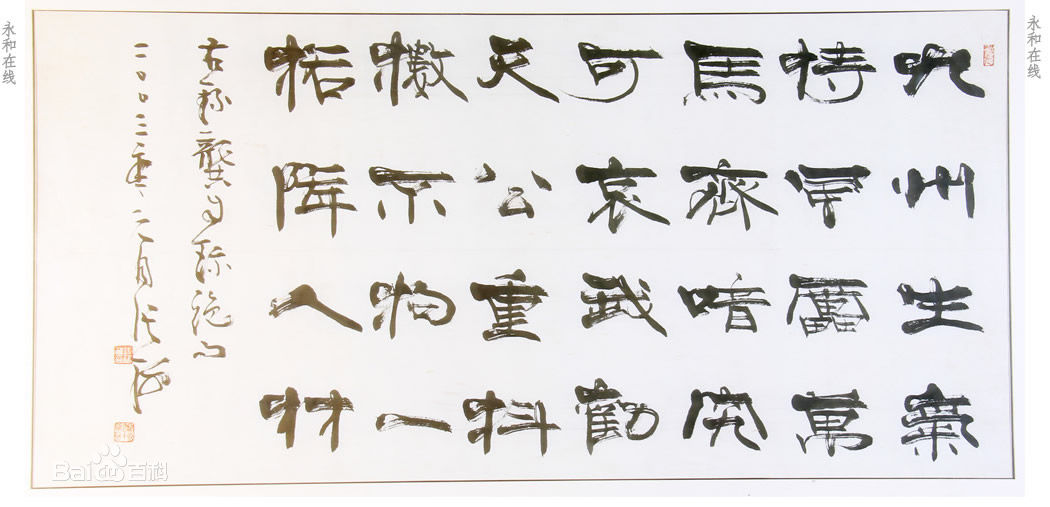 永和在线
九州生氣
恃風雷萬
馬齊喑究
可哀我勸
天公重抖
擻不拘一
格降人材
右錄龔自珍絕句
二〇〇三年月
永和在线
Bai百科